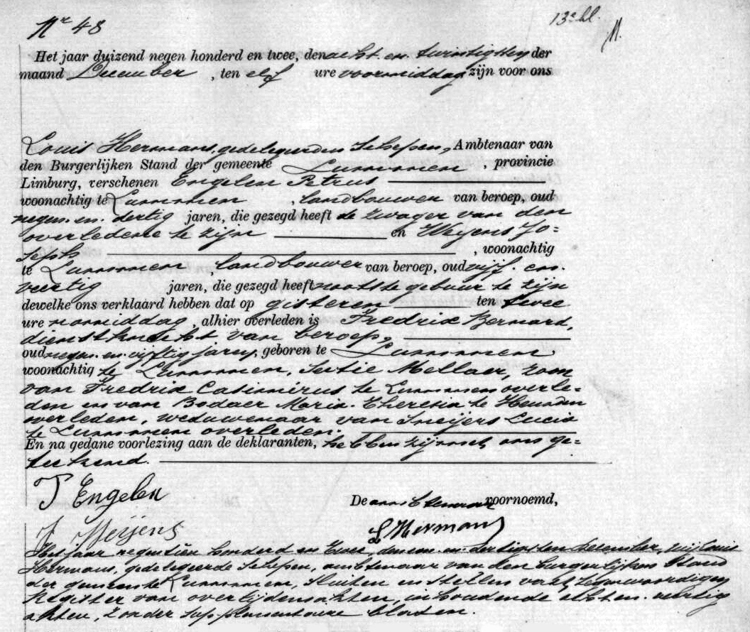 Nr 48
13e bl.
Het jaar duizend negen honderd en twee, den acht en twintigsten der
maand December, ten elf ure voormiddag zijn voor ons
Louis Hermans, gedelegeerden Schepen, Ambtenaar van
den Burgerlijken Stand der gemeente Lummen, provincie
Limburg, verschenen Engelen Petrus
woonachtig te Lummen, landbouwer van beroep, oud
negen en dertig jaren, die gezegd heeft de zwager van den
overledene te zijn en Meijens Jo-
seph, woonachtig
te Lummen, landbouwer van beroep, oud vijf en
veertig jaren, die gezegd heeft naaste gebuur te zijn
dewelke ons verklaard hebben dat op gisteren ten twee
ure namiddag, alhier overleden is Fredrix Bernard,
dienstknecht van beroep,
oud negen en vijftig jaren, geboren te Lummen
woonachtig te Lummen, Sectie Mellaer, zoon
van Fredrix Casimirus te Lummen overle-
den en van Bodaer Maria Theresia te
overleden, weduwenaar van Lucia
te Lummen overleden.
En na gedane voorlezing aan de deklaranten, hebben zij met ons ge-
teekend.
P Engelen
De ambtenaar voornoemd,
J Meijens
L Hermans
Het jaar negentien honderd en twee, den een en dertigsten december, wij Louis
Hermans, gedelegeerde schepen, ambtenaar van den burgerlijken stand
der gemeente Lummen, sluiten en stellen vast tegenwoordigen
register van overlijdensakten, inhoudende acht en veertig
akten, zonder supplementaire bladen.